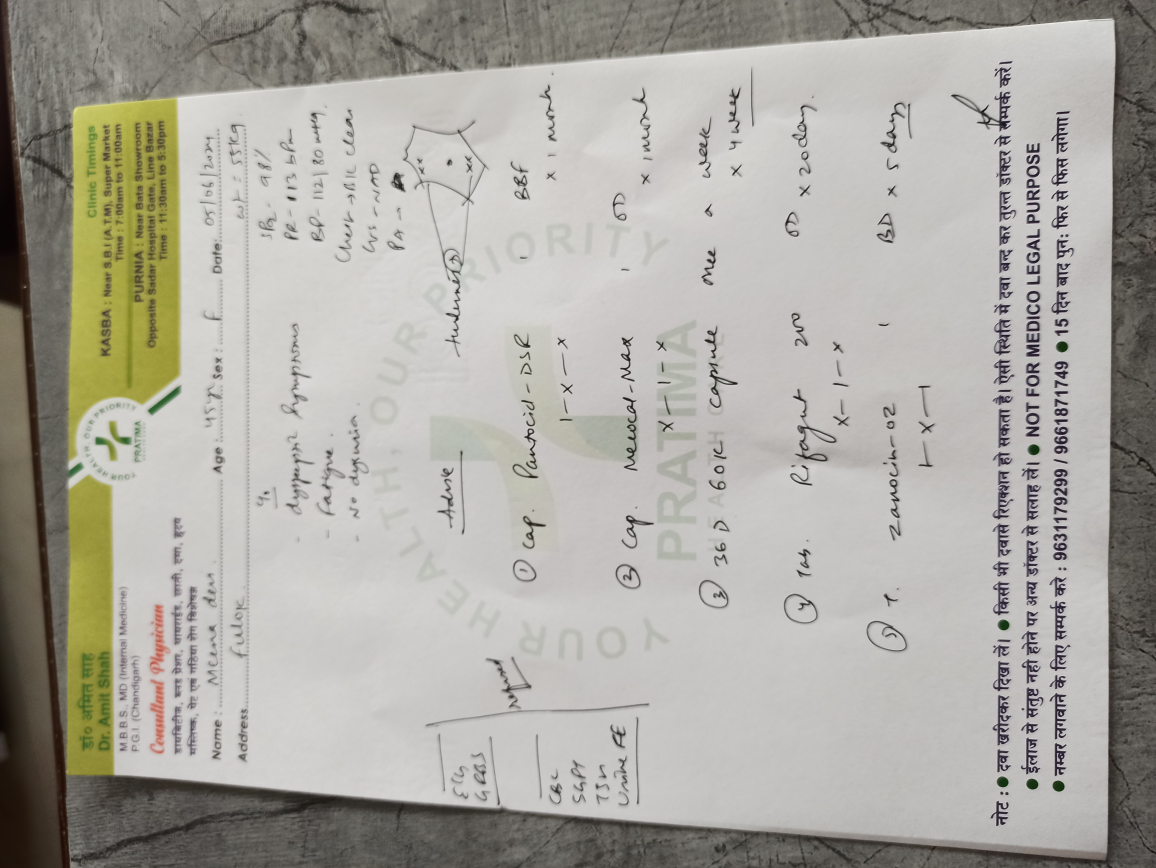 डॉ० अमित साह
Dr. Amit Shah
M.B.B.S., MD (Internal Medicine)
P.G.I. (Chandigarh)
Consultant Physician
YOUR HEALTH, OUR PRIORITY
PRATIMA
Clinic Timings
KASBA : Near S.B.I (A.T.M), Super Market
Time : 7:00am to 11:00am
PURNIA : Near Bata Showroom
Opposite Sadar Hospital Gate, Line Bazar
Time : 11:30am to 5:30pm
Name : Meena devi Age : 45 yr Sex : F Date: 05/06/2024
Address Wt : 55 kg
- dyspepsia symptoms
- Fatigue
- No dysuria
98%
PR - 113 bpm
BP - 112/80 mmHg
Chest → B/L clear
CVS - NAD
PA →
Tenderness
Advise
ECG
GRBS
CBC
SGPT
TSH
Urine RE
① Cap. Pantocid-DSR , BBF
1 - x - x x 1 month
② Cap. Max , OD
x - 1 - x x 1 month
③ 60K capsule once a week
x 4 week
④ Tab. Rifagut 200 OD x 20 day.
x - 1 - x
⑤ T. Zanocin-OZ , BD x 5 days
1 - x - 1
YOUR HEALTH, OUR PRIORITY
PRATIMA
नोट : ● दवा खरीदकर दिखा लें। ● किसी भी दवासे रिएक्शन हो सकता है। ऐसी स्थिति में दवा बन्द कर तुरन्त डॉक्टर से सम्पर्क करें।
● ईलाज से संतुष्ट नही होने पर अन्य डॉक्टर से सलाह लें। ● NOT FOR MEDICO LEGAL PURPOSE
● नम्बर लगवाने के लिए सम्पर्क करे : 9631179299 / 9661871749 ● 15 दिन बाद पुन: फिर से फिस लगेगा।